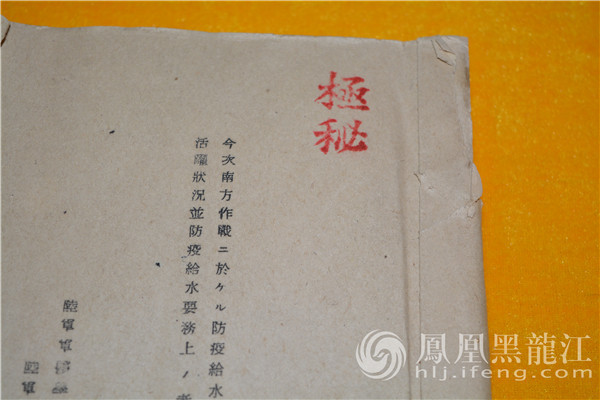 極秘
今次南方作戰ニ於ケル防疫給水
活躍狀況並防疫給水要務上ノ
陸
鳳凰黑龍江
hlj.ifeng.com